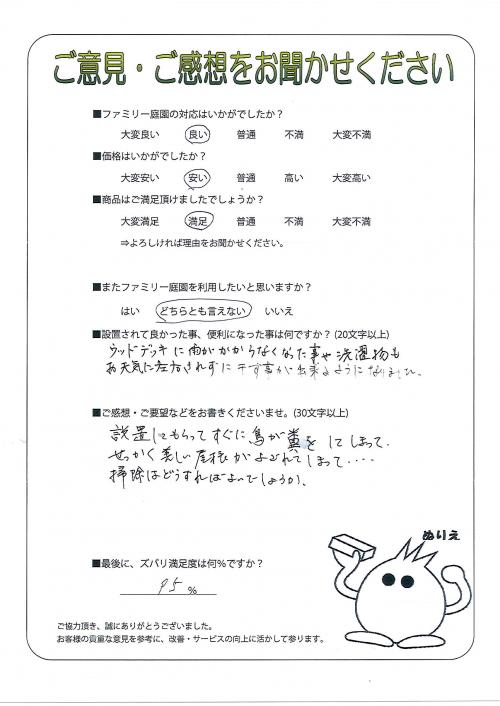 ご意見・ご感想をお聞かせください
■ファミリー庭園の対応はいかがでしたか？
大変良い 良い 普通 不満 大変不満
■価格はいかがでしたか？
大変安い 安い 普通 高い 大変高い
■商品はご満足頂けましたでしょうか？
大変満足 満足 普通 不満 大変不満
⇒よろしければ理由をお聞かせください。
■またファミリー庭園を利用したいと思いますか？
はい どちらとも言えない いいえ
■設置されて良かった事、便利になった事は何ですか？(20文字以上)
ウッドデッキに雨がかからなくなった事や洗濯物も
お天気に左右されずに干す事が出来るようになりました。
■ご感想・ご要望などをお書きくださいませ。(30文字以上)
設置してもらってすぐに鳥が糞をしてしまって、
せっかく美しい屋根がよごれてしまって‥‥
掃除はどうすればよいでしょうか。
ぬりえ
■最後に、ズバリ満足度は何％ですか？
95 %
ご協力頂き、誠にありがとうございました。
お客様の貴重な意見を参考に、改善・サービスの向上に活かして参ります。